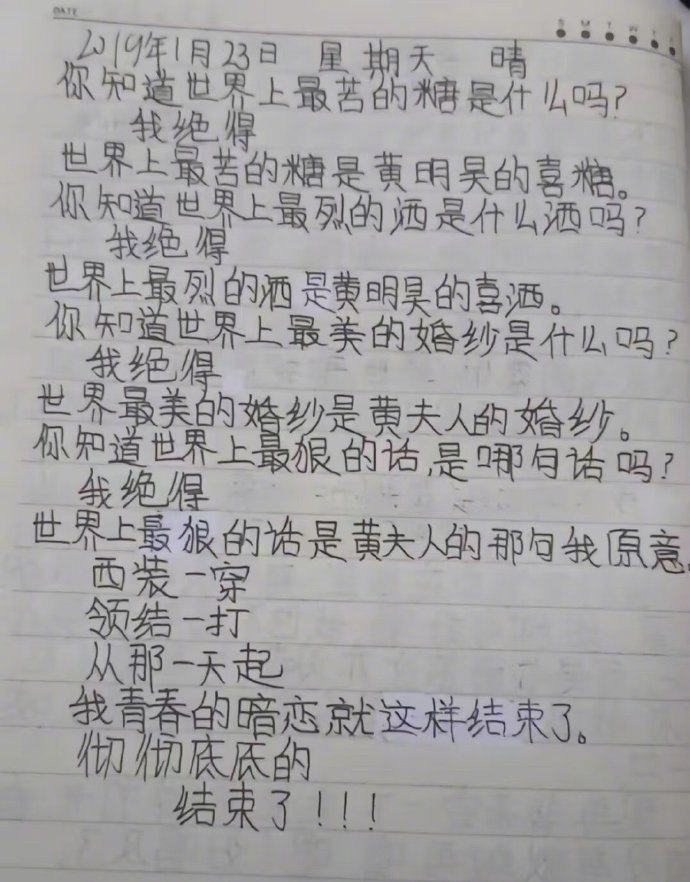 DATE
S M T W T
2019年1月23日 星期天 晴
你知道世界上最苦的糖是什么吗?
我绝得
世界上最苦的糖是黄明昊的喜糖。
你知道世界上最烈的洒是什么洒吗?
我绝得
世界上最烈的洒是黄明昊的喜洒。
你知道世界上最美的婚纱是什么吗?
我绝得
世界最美的婚纱是黄夫人的婚纱。
你知道世界上最狠的话,是哪句话吗?
我绝得
世界上最狠的话是黄夫人的那句我原意
西装一穿
领结一打
从那一天起
我青春的暗恋就这样结束了。
彻彻底底的
结束了!!!